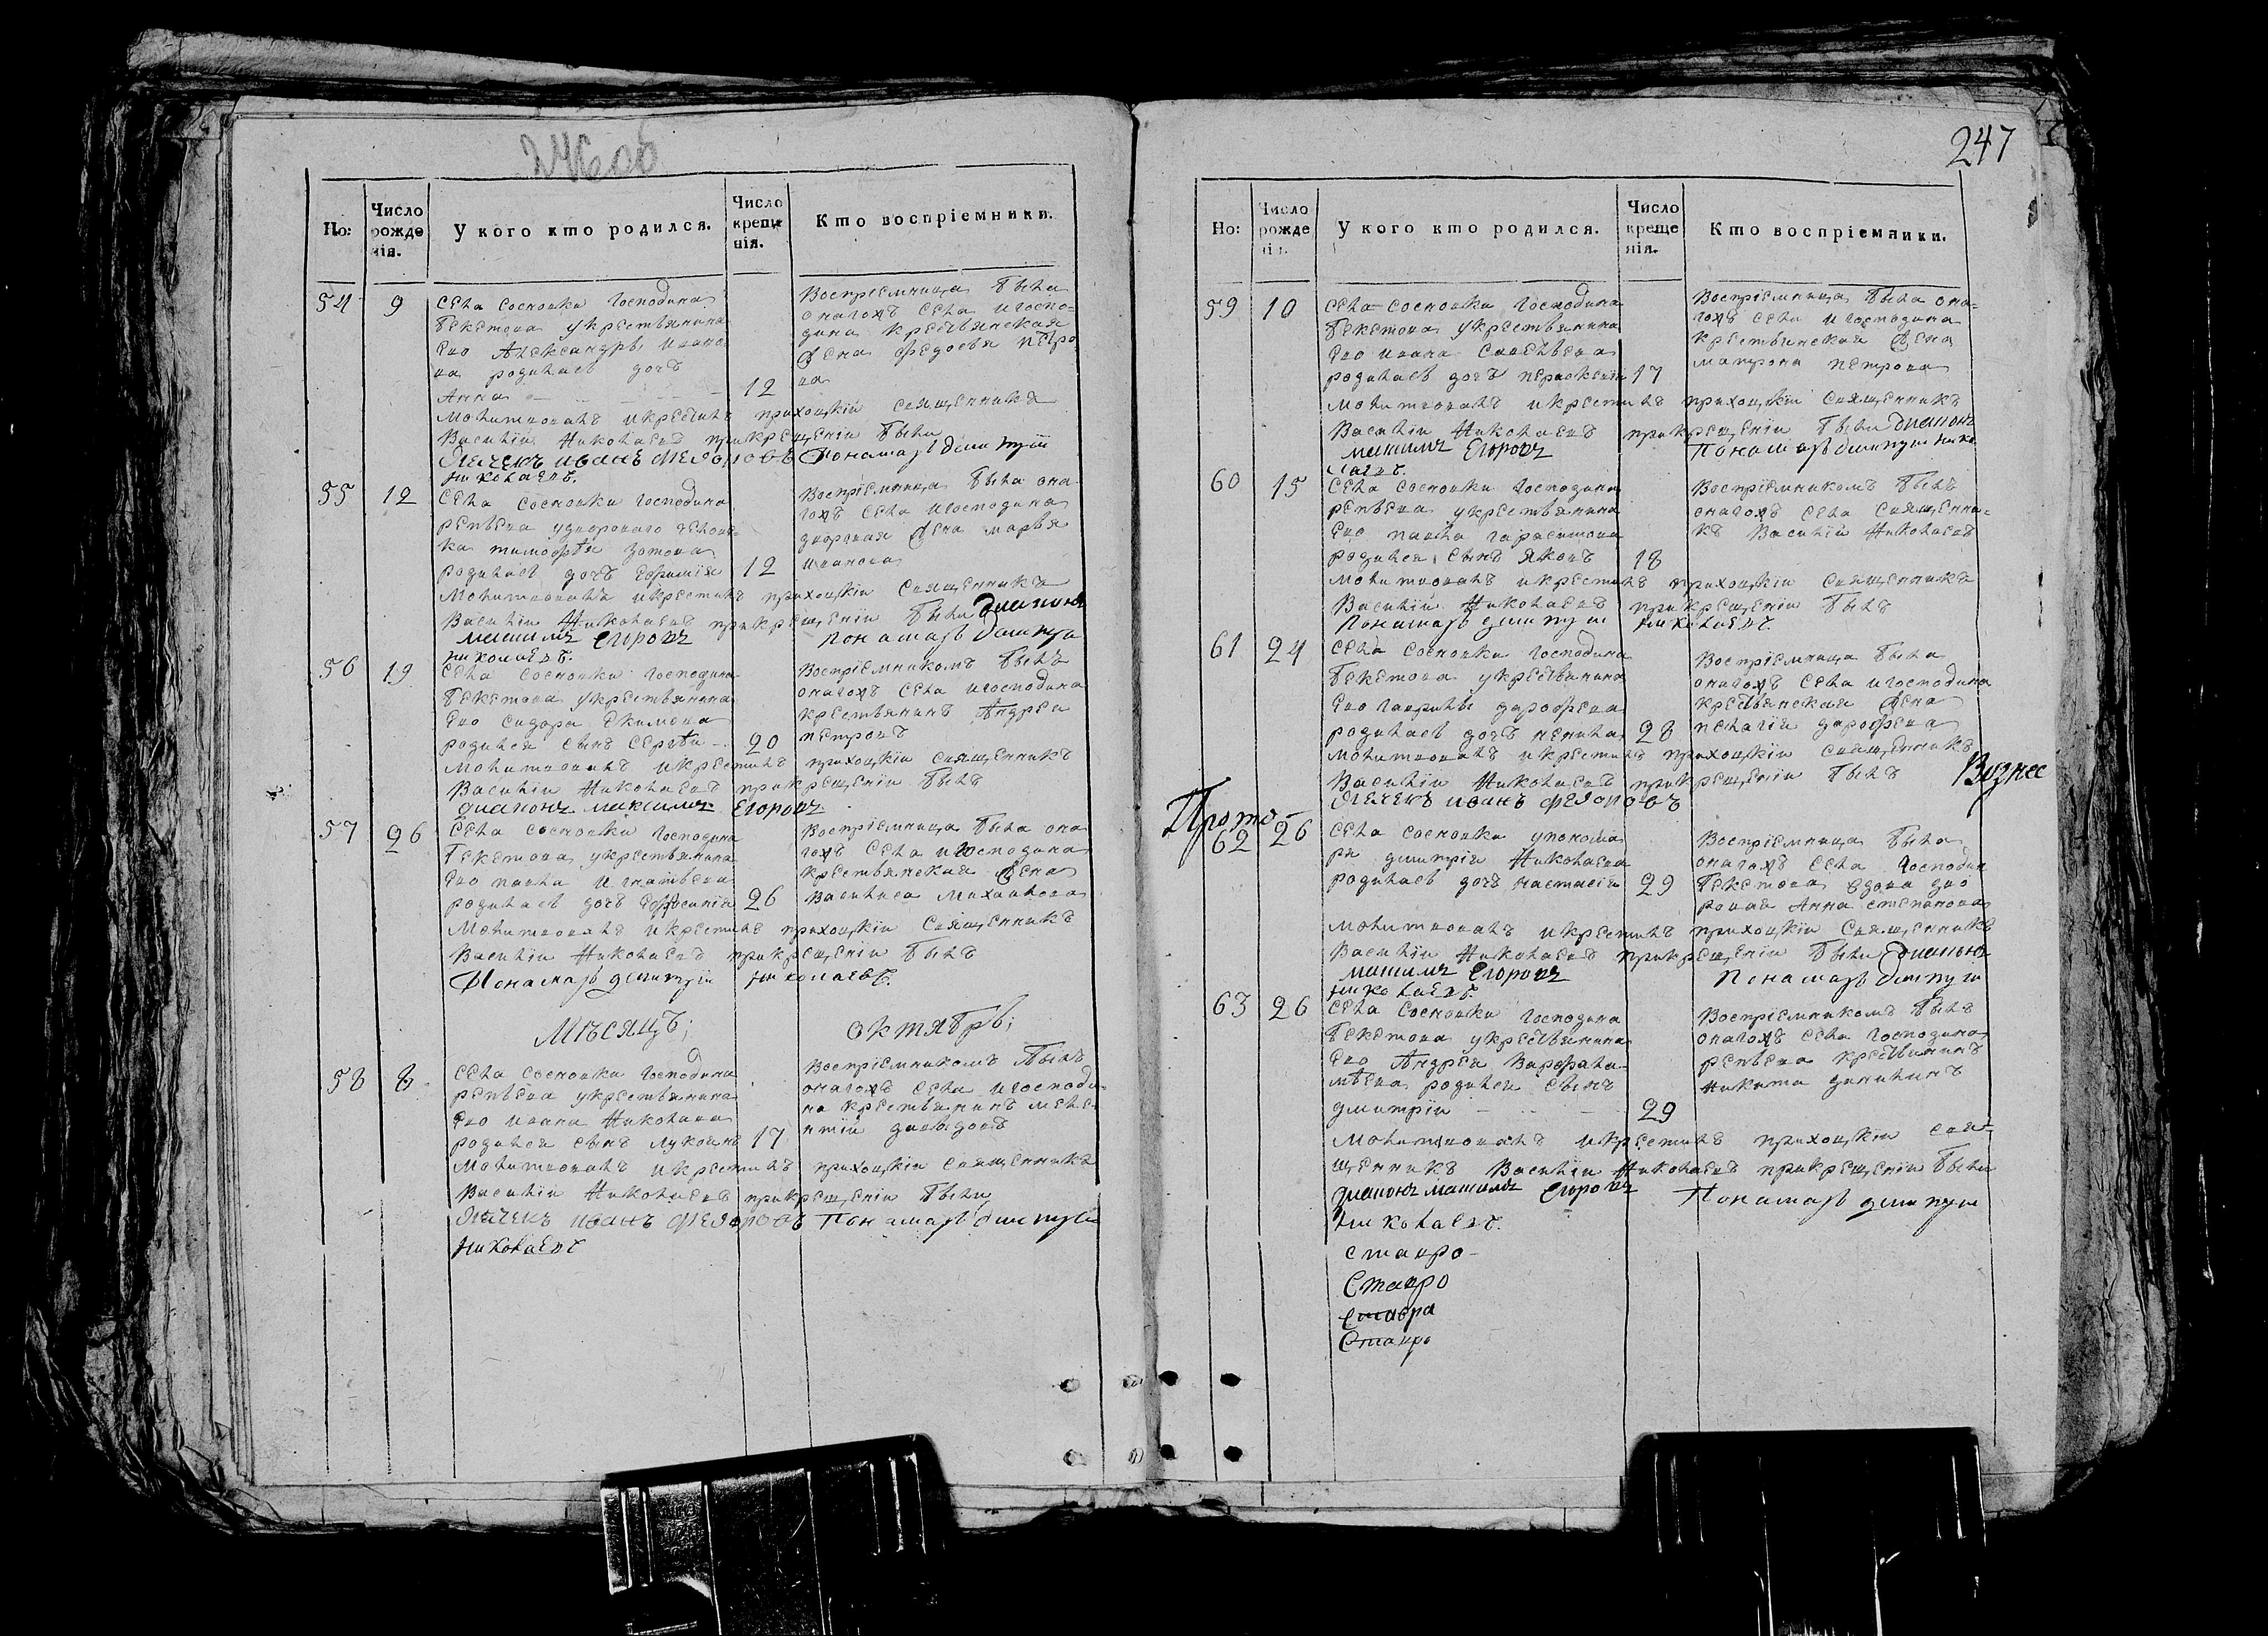 246 об
Но:
Число рожденія.
У кого кто родился.
Число крещенія.
Кто воспріемники.
54
9
села сосновки господина
бекетова укрестьянина
его Александры ивано
ва родилась дочь
Анна
12
Воспріемница была
оногожъ села игоспо-
дина крестьянская
жена федосья петро
ва
молитвовалъ икрестилъ приходскіи священникъ
Василіи Николаевъ прикрещеніи были
дьячекъ иванъ федоровъ Понамарь дмитріи
николаевъ.
55
12
села сосновки господина
репьева удвороваго челове-
ка тимофѣя зотова
родилась дочь ефимія
12
Воспріемница была оно-
гожъ села игосподина
дворовая жена марья
иванова
молитвовалъ икрестилъ приходскіи священникъ
Василіи Николаевъ прикрещеніи были диаконъ
максимъ егоровъ понамарь дмитри
николаевъ.
56
19
села сосновки господина
бекетова укрестьянина
его сидора екимова
родился сынъ сергѣи
20
Воспріемникомъ былъ
оногожъ села игосподина
крестьянинъ Андреи
петровъ
молитвовалъ икрестилъ приходскіи священникъ
Василіи Николаевъ прикрещеніи былъ
диаконъ максимъ Егоровъ
57
26
села сосновки господина
бекетова укрестьянина
его павла игнатьева
родилась дочь ефросинія
26
Воспріемница была оно
гожъ села игосподина
крестьянская жена
василиса михаилова
молитвовалъ икрестилъ приходскіи священникъ
Василіи Николаевъ прикрещеніи былъ
Понамарь дмитріи николаевъ.
Мѣсяцъ; октябрь;
58
8
села сосновки господина
репьева укрестьянина
его ивана Николаева
родился сынъ лукоянъ
17
Воспріемникомъ былъ
оногожъ села игосподи-
на крестьянинъ меле-
нтіи давыдовъ
молитвовалъ икрестилъ приходскіи священникъ
Василіи Николаевъ прикрещеніи были
дьячекъ иванъ федоровъ Понамарь дмитреи
николаевъ
247
Но:
Число рожденія.
У кого кто родился.
Число крещенія.
Кто воспріемники.
59
10
села сосновки господина
бекетова укрестьянина
его ивана савельева
родилась дочь параскевія
17
Воспріемница была оно-
гожъ села игосподина
крестьянская жена
матрона петрова
молитвовалъ икрестилъ приходскіи священникъ
Василіи Николаевъ прикрещеніи были диаконъ
максимъ Егоровъ Понамарь дмитреи нико
лаевъ.
60
15
села сосновки господина
репьева укрестьянина
его павла гарасимова
родился сынъ яковъ
18
Воспріемникомъ былъ
оногожъ села священни-
къ Василіи Николаевъ
молитвовалъ икрестилъ приходскіи священникъ
Василіи Николаевъ прикрещеніи былъ
Понамарь дмитреи николаевъ.
61
24
села сосновки господина
бекетова укрестьянина
его гаврилы дарофеева
родилась дочь ненила
28
Воспріемница была
оногожъ села игосподина
крестьянская жена
пелагія дарофеева
молитвовалъ икрестилъ приходскіи священникъ
Василіи Николаевъ прикрещеніи былъ
дьячекъ иванъ федоровъ
Вознес
Прото-
62
26
села сосновки упонома
ря дмитрія Николаева
родилась дочь настасія
29
Воспріемница была
оногожъ села господин
бекетова вдова дво
ровая Анна степанова
молитвовалъ икрестилъ приходскіи священникъ
Василіи Николаевъ прикрещеніи были диаконъ
максимъ Егоровъ Понамарь дмитреи
николаевъ.
63
26
села сосновки господина
бекетова укрестьянина
его Андрея Варфало-
мѣева родился сынъ
дмитріи
29
Воспріемникомъ былъ
оногожъ села господина
репьева крестьянинъ
никита данилинъ
молитвовалъ икрестилъ приходскіи свя-
щенникъ Василіи Николаевъ прикрещеніи были
диаконъ максимъ Егоровъ Понамарь дмитреи
николаевъ.
ставро-
Ставро
Ставра
Ставро